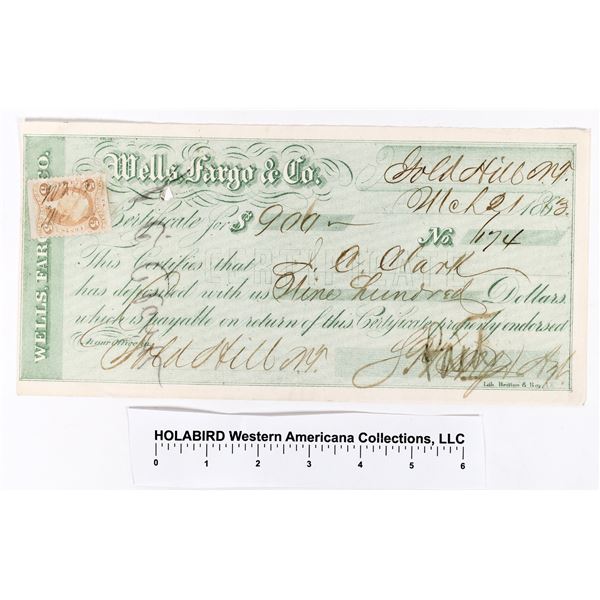 Wells Fargo & Co.
Gold Hill N.T.
Mch 21 1863.
Certificate for $ 900 —
No. 174
This Certifies that J. C. Clark
has deposited with us Nine Hundred Dollars
which is payable on return of this Certificate properly endorsed
Gold Hill N.T.
Agt
Lith. Britton & Rey, S.F.
WELLS, FARGO & CO.
HOLABIRD Western Americana Collections, LLC
0 1 2 3 4 5 6